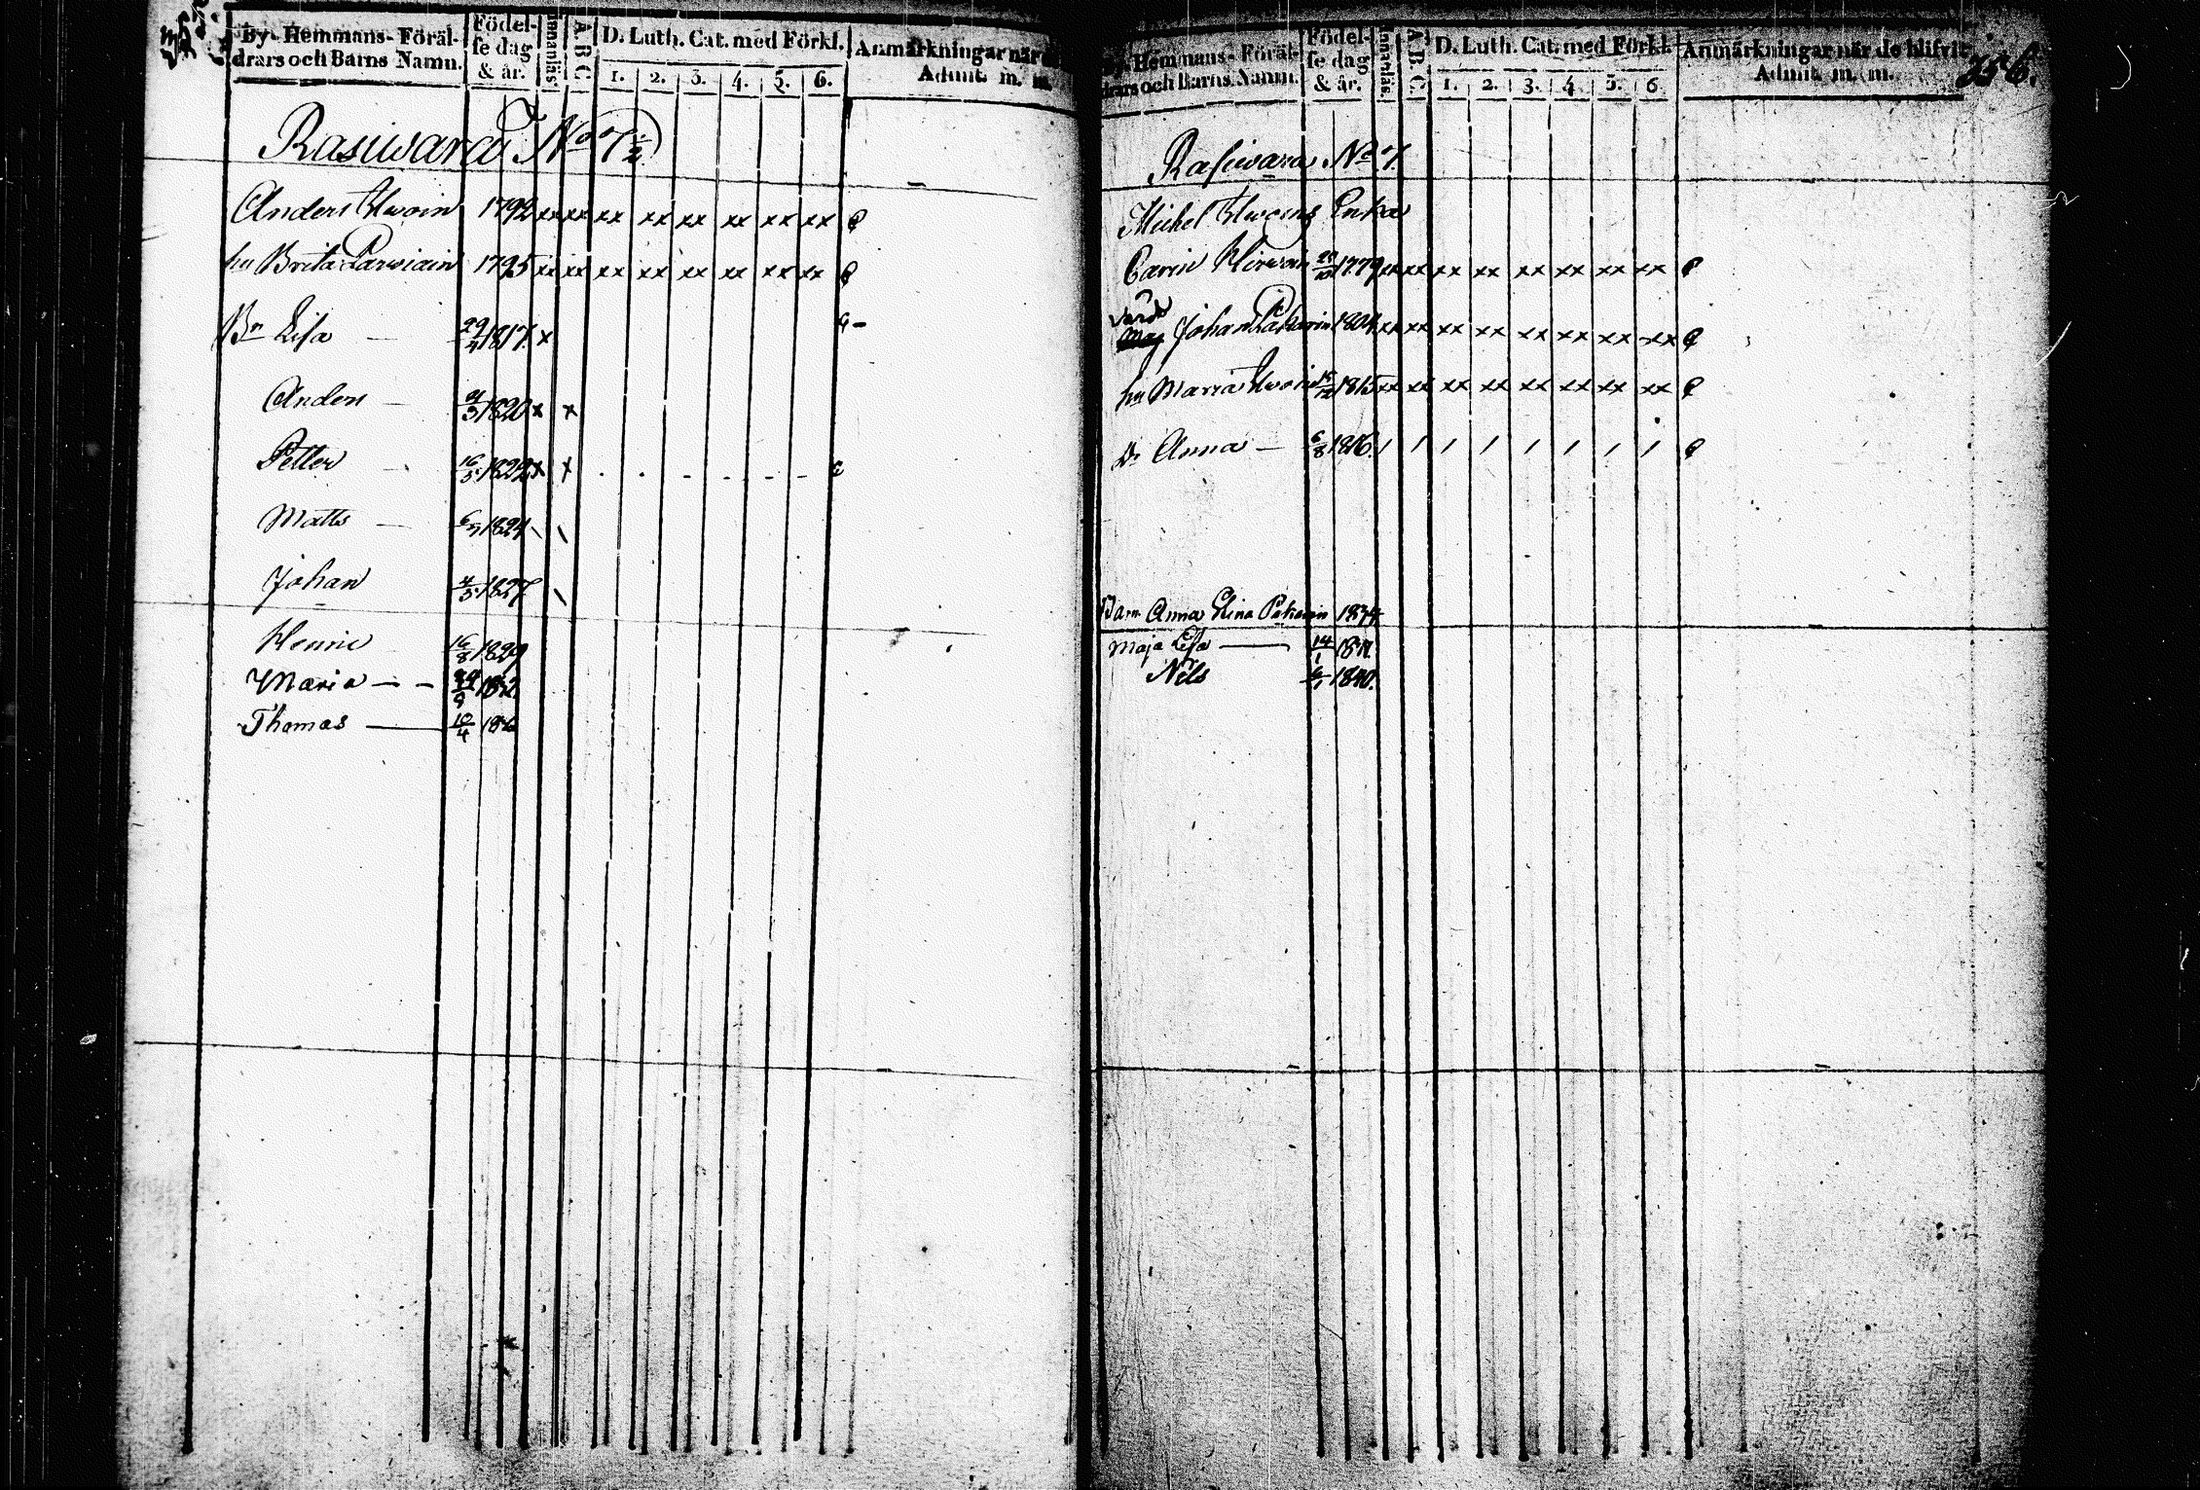 355.
By- Hemmans- Föräl-
drars och Barns Namn.
Födel-
se dag
& år.
Innanläs.
A B C
D. Luth. Cat. med Förkl.
1. 2. 3. 4. 5. 6.
Anmärkningar när de
Admit. m. m.
Rasiwara No 7 1/2
Anders 1792 xx xx xx xx xx xx xx xx
hu Brita Parviain 1795 xx xx xx xx xx xx xx xx
Bn Lisa — 29/4 1817. x
Anders — /3 1820 x x
Petter — 16/5 1822 x x
Matts — 1824 \ \
Johan 4/5 1827 \
Henric 16/8 1829
Maria — — /9 1832
Thomas — 10/4 1836
356.
By- Hemmans- Föräl-
drars och Barns Namn.
Födel-
se dag
& år.
Innanläs.
A B C
D. Luth. Cat. med Förkl.
1. 2. 3. 4. 5. 6
Anmärkningar när de blifvit
Admit. m. m.
Rasiwara No 7.
Michel Enka
Carin 1779 xx xx xx xx xx xx xx xx
Johan Pakarin 1804 xx xx xx xx xx xx xx xx
hu Maria 1815 xx xx xx xx xx xx xx xx
Dr Anna — 6/8 1816. / / / / / / / /
Barn Anna Elina Pakarin 1834
Maja Lisa — 14/1
Nils 1840.